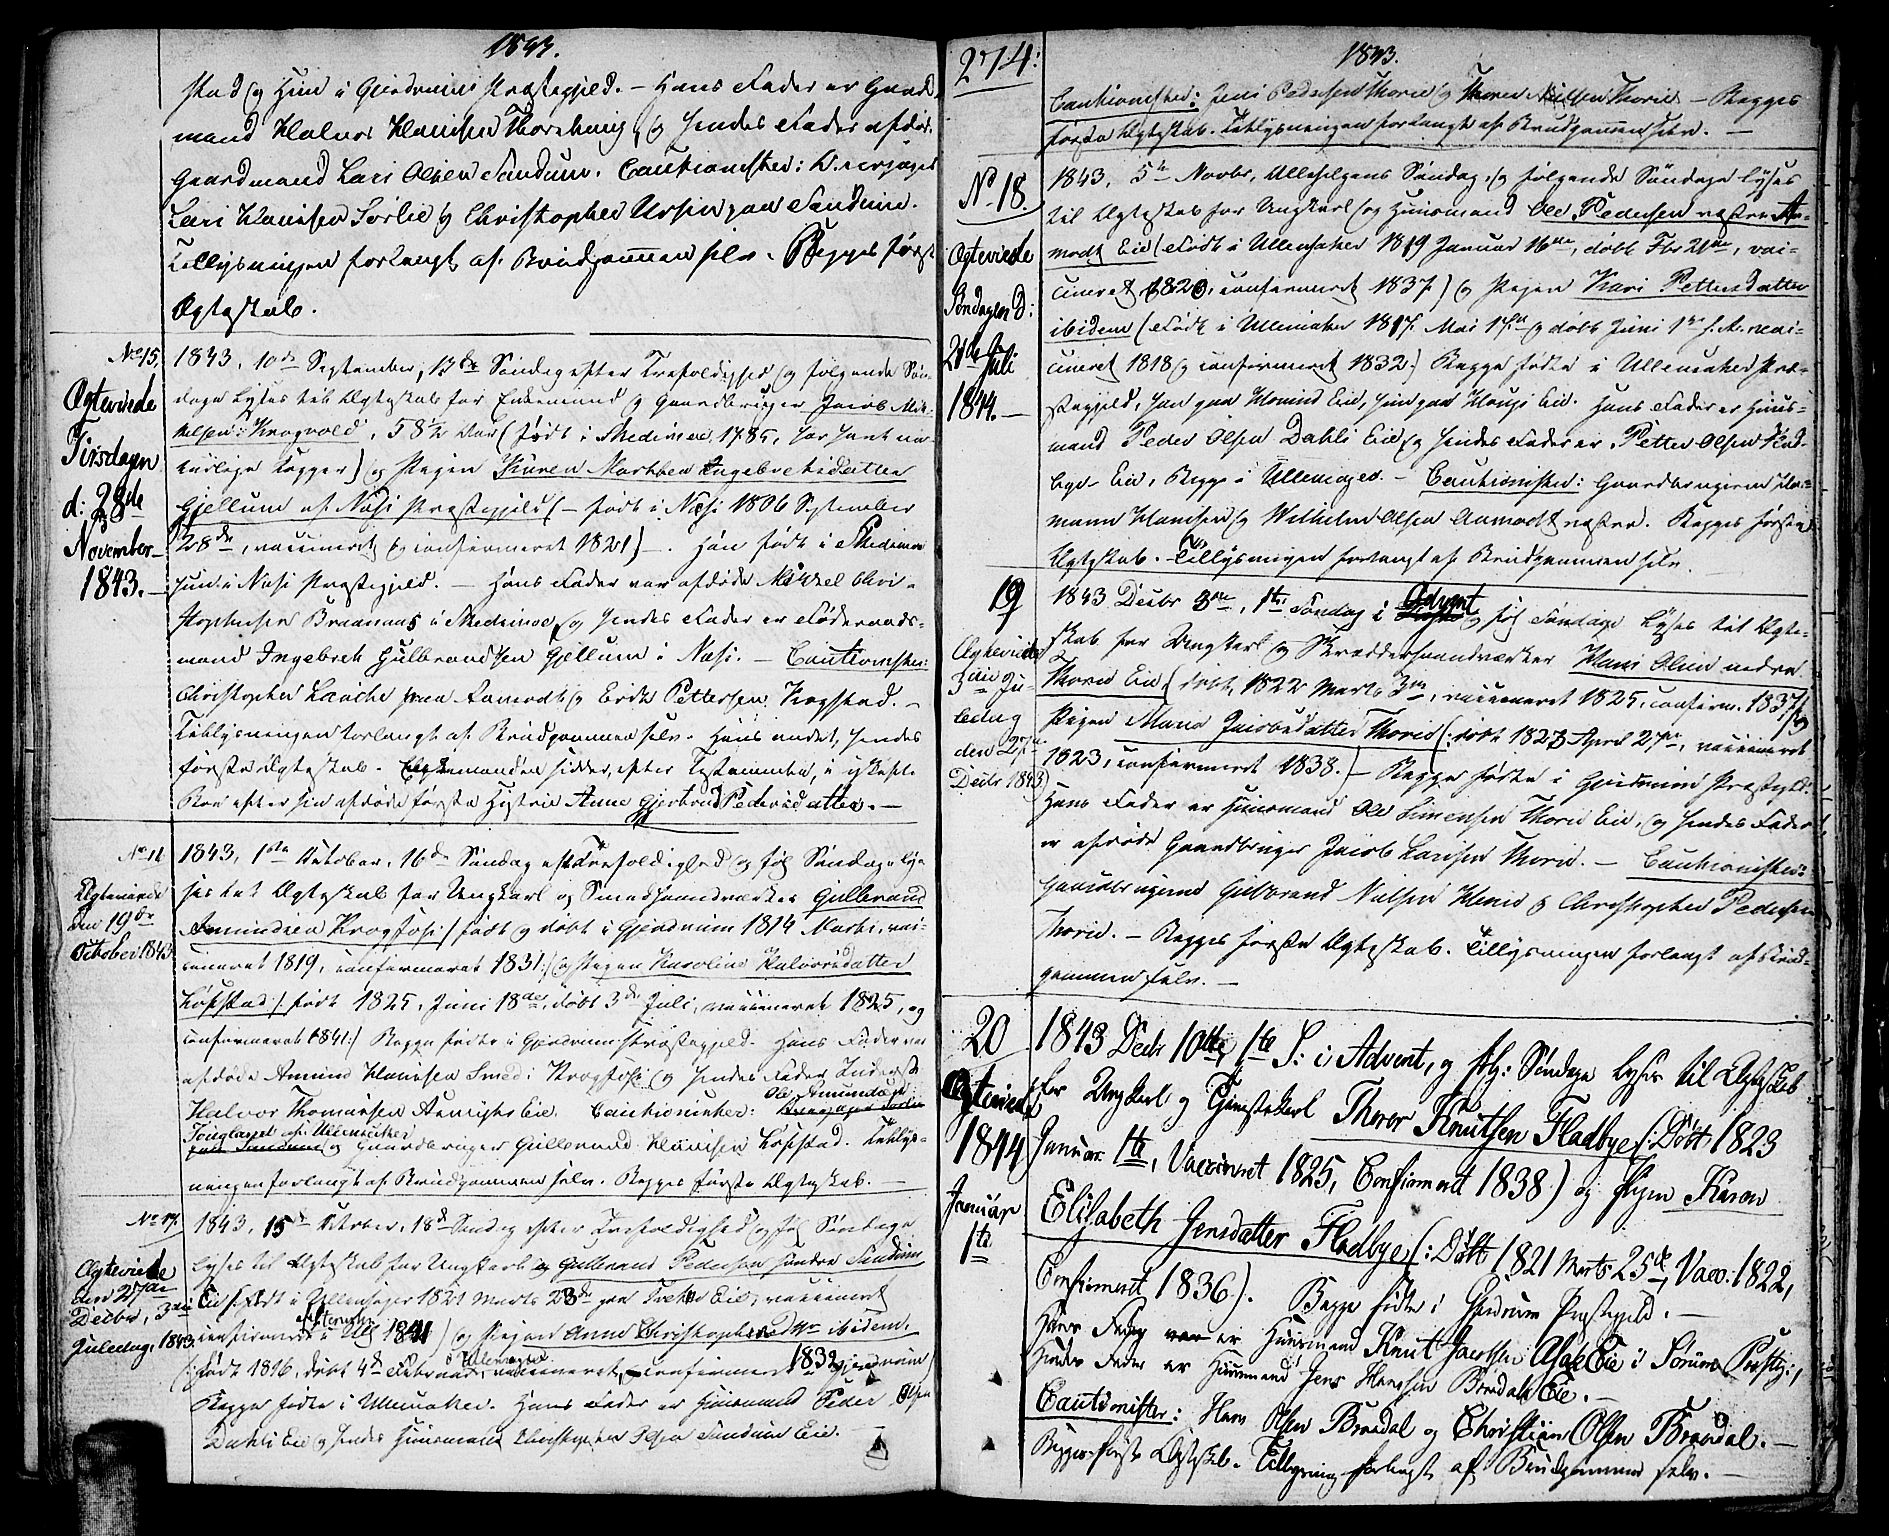 1843.
stad og Hun i Gjerdrums Præstegjeld. – Hans Fader er Gaard
mand Halvor Hansen Thorshaug, og hendes Fader afdøde
Gaardmand Lars Olsen Sandum. Cautionister:
Lars Hansen Sørlie og Christopher paa Sandum.
Tillysningen forlangt af Brudgommen selv. Begges første
Ægteskab.
No 15.
Ægteviede
Tirsdagen
d: 28de
November
1843. –
1843, 10de September, 13de Søndag efter Trefoldighed og følgende Søn-
dage lyses til Ægteskab for Enkemand og Gaardbruger Jacob Mik-
kelsen Krogvold, 58½ Aar (født i Skedsmoe 1785, har havt na-
turlige Kopper) og Pigen Karen Marthea Ingebretsdatter
Gjellum af Næs Præstegjeld (– født i Næs 1806 September
28de, vaccineret og confirmeret 1821) –. Han født i Skedsmoe
hun i Næs Præstegjeld. – Hans Fader var afdøde Mikkel Chri-
stophersen Braanaas i Skedsmoe og hendes Fader er Føderaads-
mand Ingebreth Gulbrandsen Gjellum i Næs. – Cautionister:
Christopher Laache paa Aamodt og Erik Pettersen Kogstad. –
Tillysningen forlangt af Brudgommen selv. Hans andet, hendes
første Ægteskab. Enkemanden sidder, efter Testamente, i uskiftet
Boe efter sin afdøde første Hustrue Anne Gjertrud Pedersdatter. –
No 16
Ægteviede
den 19de
October 1843
1843, 1ste October, 16de Søndag eft Trefoldighed og føl Søndage ly-
ses til Ægteskab for Ungkarl og Smedhaandverker Gulbrand
Amundsen Krogfoss (født og døbt i Gjerdrum 1814 Marts, vac-
cineret 1819, confirmeret 1831) og Pigen Karoline Halvorsdatter
Løkstad (født 1825, Juni 18de, døbt 3de Juli, vaccineret 1825, og
confirmeret 1841) Begge fødte i Gjerdrums Præstegjeld. Hans Fader var
afdøde Amund Hansen Smed i Krogfoss og hendes Fader Inderst
Halvor Thomassen Eie. Cautionister: Ole Amundsen
af Ullensaker
og Gaardbruger Gulbrand Hansen Løkstad. Tillys-
ningen forlangt af Brudgommen selv. Begges første Ægteskab. –
No 17.
Ægteviede
den 27de
Decbr, 3die
Juledag, 1843
1843, 15de October, 18de Søndag efter Trefoldighed og føl Søndage
lyses til Ægteskab for Ungkarl og Gulbrand Pedersen søndre Sandum
Eie (født i Ullensager 1821 Marts 23de paa Eie, vaccineret
confirmeret i Ull 1841) og Pigen Anne Christophersdtr ibidem.
(: født 1816, døbt 4de Februar, i Ullensager vaccineret, confirmeret 1832 i Gjerdrum)
Begge fødte i Ullensaker. Hans Fader er Huusmand Peder Olsen
Dahls Eie og hendes Huusmand Christopher Sandum Eie. –
274:
1843.
Cautionister: Jens Pedersen Thorie og Thorer Nielsen Thorie – Begges
første Ægteskab. Tillysningen forlangt af Brudgommen selv. –
No 18.
Ægteviede
Søndagen d:
21de Juli
1844. –
1843, 5te Novbr, Allehelgens Søndag, og følgende Søndage lyses
til Ægteskab for Ungkarl og Huusmand Ole Pedersen næstre Aa-
modt Eie (Født i Ullensaker 1819 Januar 16de, døbt Fbr 21de, vac-
cineret 1820, confirmeret 1837) og Pigen Kari Pettersdatter
ibidem (Født i Ullensaker 1817 Mai 17de og døbt Juni 1ste s. A. vac-
cineret 1818 og confirmeret 1832.) Begge fødte i Ullensaker Præ-
stegjeld, han paa Eie, hun paa Eie. Hans Fader er Huus-
mand Peder Olsen Dahls Eie og hendes Fader er Petter Olsen
Eie, Begge i Ullensager. – Cautionister: Gaardbrugerne Her-
mann Hansen og Wilhelm Olsen Aamodt næstre. Begges første
Ægteskab. Tillysningen forlangt af Brudgommen selv.
19
Ægteviede
3die Ju-
ledag
den 27de
Decbr 1843
1843 Decbr 3die, 1ste Søndag i Advent og føl Søndage lyses til Ægte-
skab for Ungkarl og Skrædderhaandværker Hans Olsen nedre
Thorie Eie, (døbt, 1822 Marts 3die, vaccineret 1825, confirm. 1837) og
Pigen Maria Jacobsdatter Thorie (: døbt 1823 April 27de, vaccineret
1823, confirmeret 1838.) – Begge fødte i Gjerdrum Præstegjeld.
Hans Fader er Huusmand Ole Simensen Thorie Eie, og hendes Fader
er afdøde Gaardbruger Jacob Larssen Thorie. – Cautionister:
Gaardbrugerne Gulbrand Nielsen og Christopher Pedersen
Thorie. – Begges første Ægteskab. Tillysningen forlangt af Brud-
gommen selv. –
20
Ægteviede
1844
Januar
1te
1843 Decbr 10de, 1te S: i Advent, og følg: Søndage lyses til Ægteskab
for Ungkarl og Tjenestekarl Thorer Knutsen Fladbye (: Døbt 1823
Januar 1te, Vaccineret 1825, Confirmeret 1838) og Pigen Karen
Elisabeth Jensdatter Fladbye (: Døbt 1821 Marts 25de Vacc: 1822,
Confirmeret 1836). Begge fødte i Gjerdrum Præstegjeld. –
Hans Fader var er Huusmand Knut Jacobsen Asak Eie i Sørum Præstg:,
Hendes Fader er Huusmand Jens Hansen Brædal Eie. –
Cautionister: Hans Olsen Brædal og Christian Olsen Brædal. –
Begges første Ægteskab. Tillysning forlangt af Brudgommen selv. –